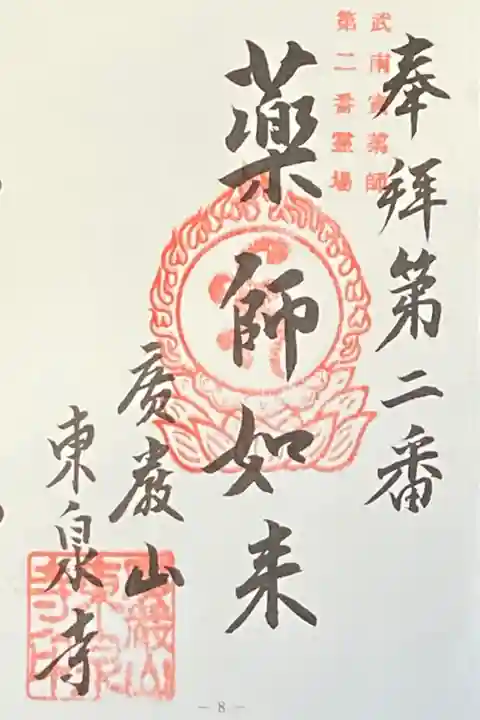 武南寅薬師
第二番霊場
奉拜第二番
薬師如来
廣巌山
東泉寺
－8－